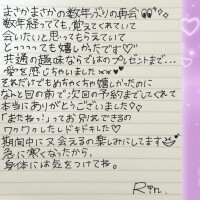 まさかまさかの数年ぶりの再会
数年経ってても、覚えてくれていて
会いたいと思ってもらえていて
とっっっっても嬉しかったです♡
共通の趣味ならではのプレゼントまで…
愛を感じちゃいました××
それだけでもめちゃくちゃ嬉しかったのに
なんと目の前で次回の予約までしてくれて
本当にありがとうございました
「またねっ」ってお別れできるの
ワクワクしたしドキドキした♡
期間中に又会えるの楽しみにしてます
急に寒くなったから、
身体には気をつけてね。
Rin.